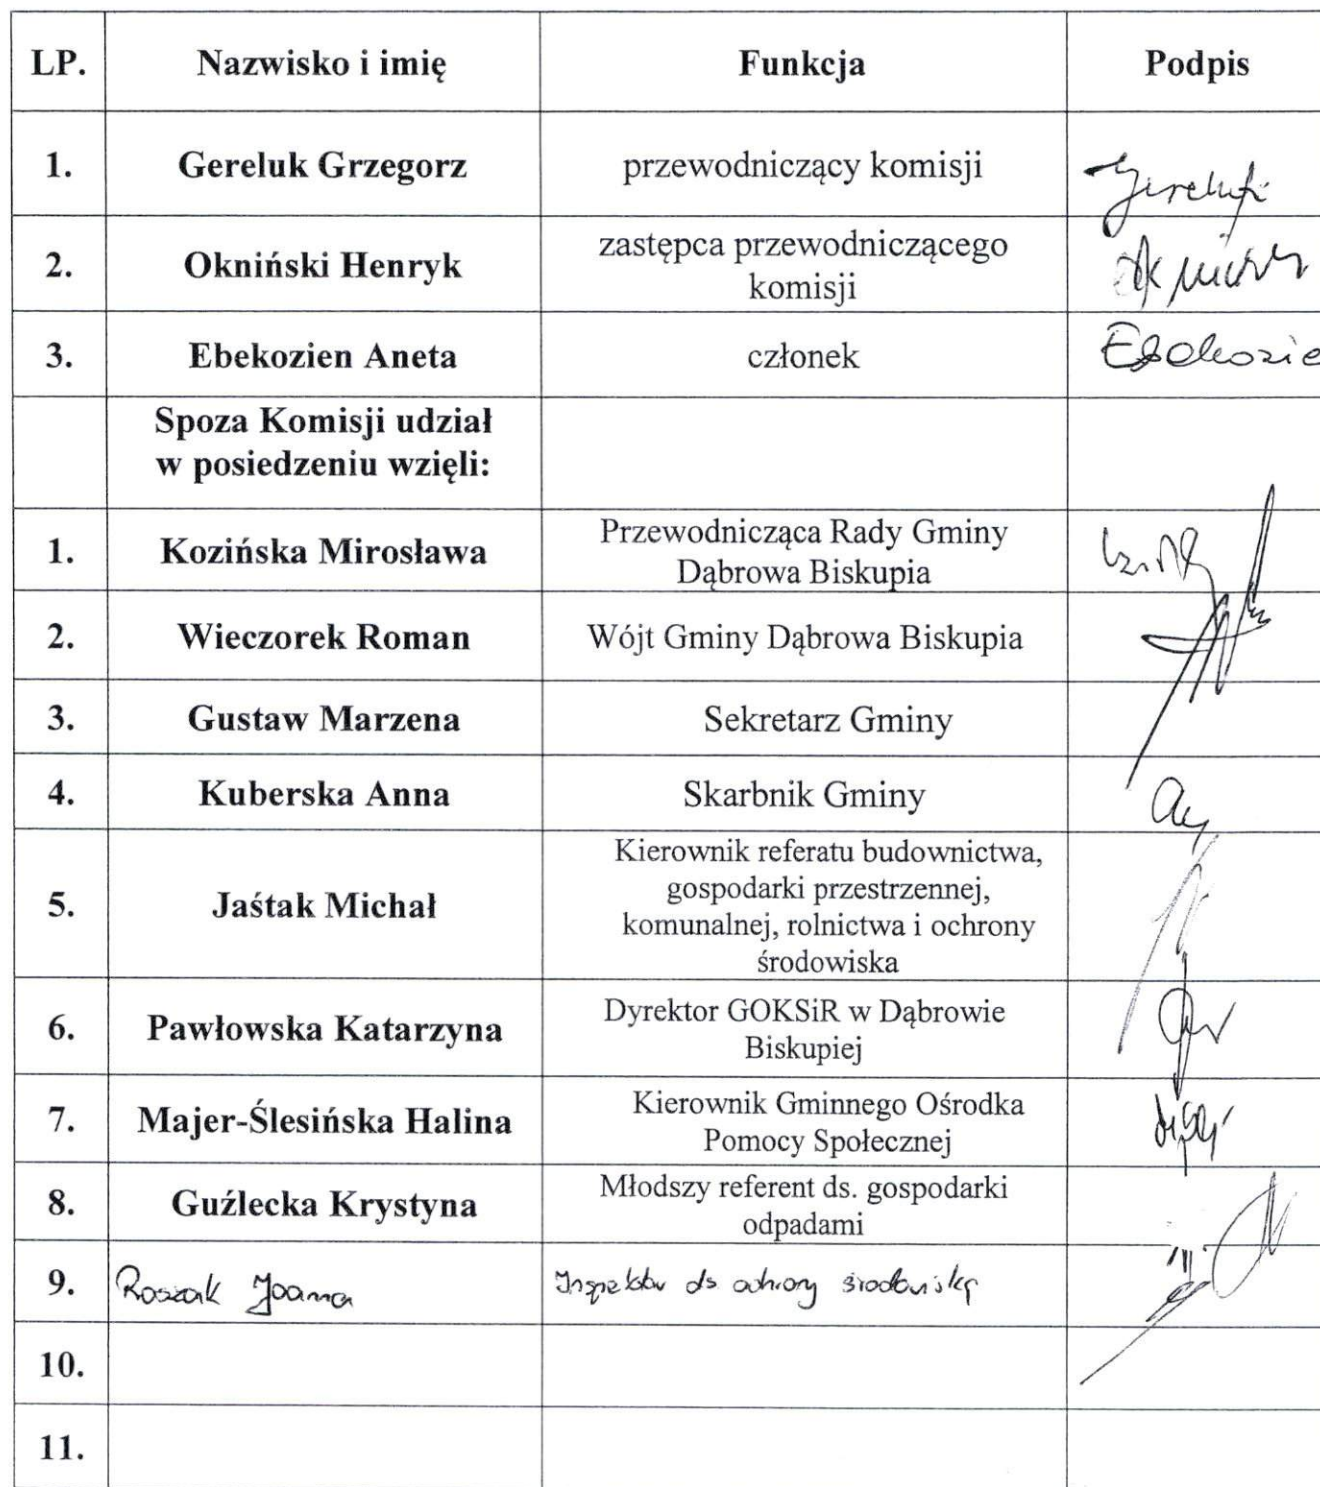 LP. Nazwisko i imię Funkcja Podpis
1. Gereluk Grzegorz przewodniczący komisji Gereluk
2. Okniński Henryk zastępca przewodniczącego
komisji
3. Ebekozien Aneta członek Ebekozie
Spoza Komisji udział
w posiedzeniu wzięli:
1. Kozińska Mirosława Przewodnicząca Rady Gminy
Dąbrowa Biskupia
2. Wieczorek Roman Wójt Gminy Dąbrowa Biskupia
3. Gustaw Marzena Sekretarz Gminy
4. Kuberska Anna Skarbnik Gminy
5. Jaśtak Michał Kierownik referatu budownictwa,
gospodarki przestrzennej,
komunalnej, rolnictwa i ochrony
środowiska
6. Pawłowska Katarzyna Dyrektor GOKSiR w Dąbrowie
Biskupiej
7. Majer-Ślesińska Halina Kierownik Gminnego Ośrodka
Pomocy Społecznej
8. Guźlecka Krystyna Młodszy referent ds. gospodarki
odpadami
9. Roszak Joanna Inspektor ds ochrony środowiska
10.
11.